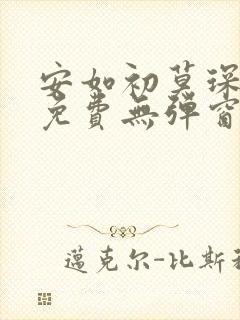 安如初莫琛
免費無彈窗
邁克尔-比斯利